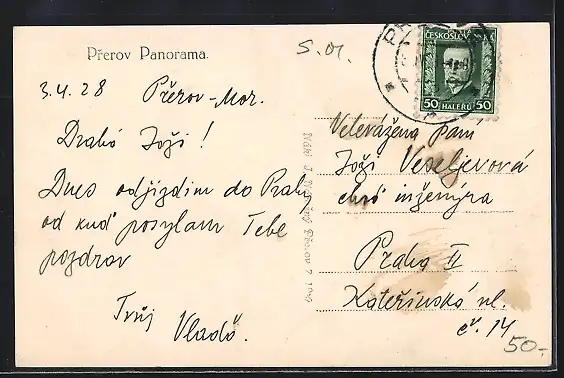 Přerov Panorama.
S.01.
3.4.28 Přerov-Mor.
Drahá Joži!
Dnes odjizdim do Prahy
od kud posylam Tebe
pozdrav
Tvůj
Vladó.
ČESKOSLOVENSKÁ
50 HALÉŘŮ 50
Velevážena pani
Joži Veseljevová
choť inženýra
Praha II
Kateřinská ul.
č. 14
50.-